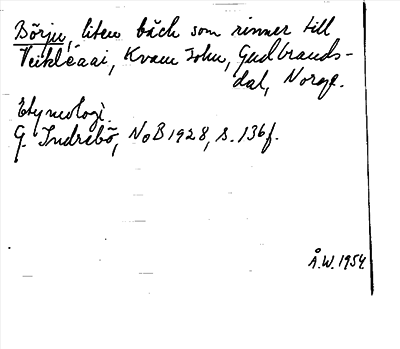 Börju, liten bäck som rinner till
Veikleåai, Kvam sokn, Gudbrands-
dal, Norge.
Etymologi.
G. Indrebö, NoB 1928, s. 136 f.
Å.W. 1954